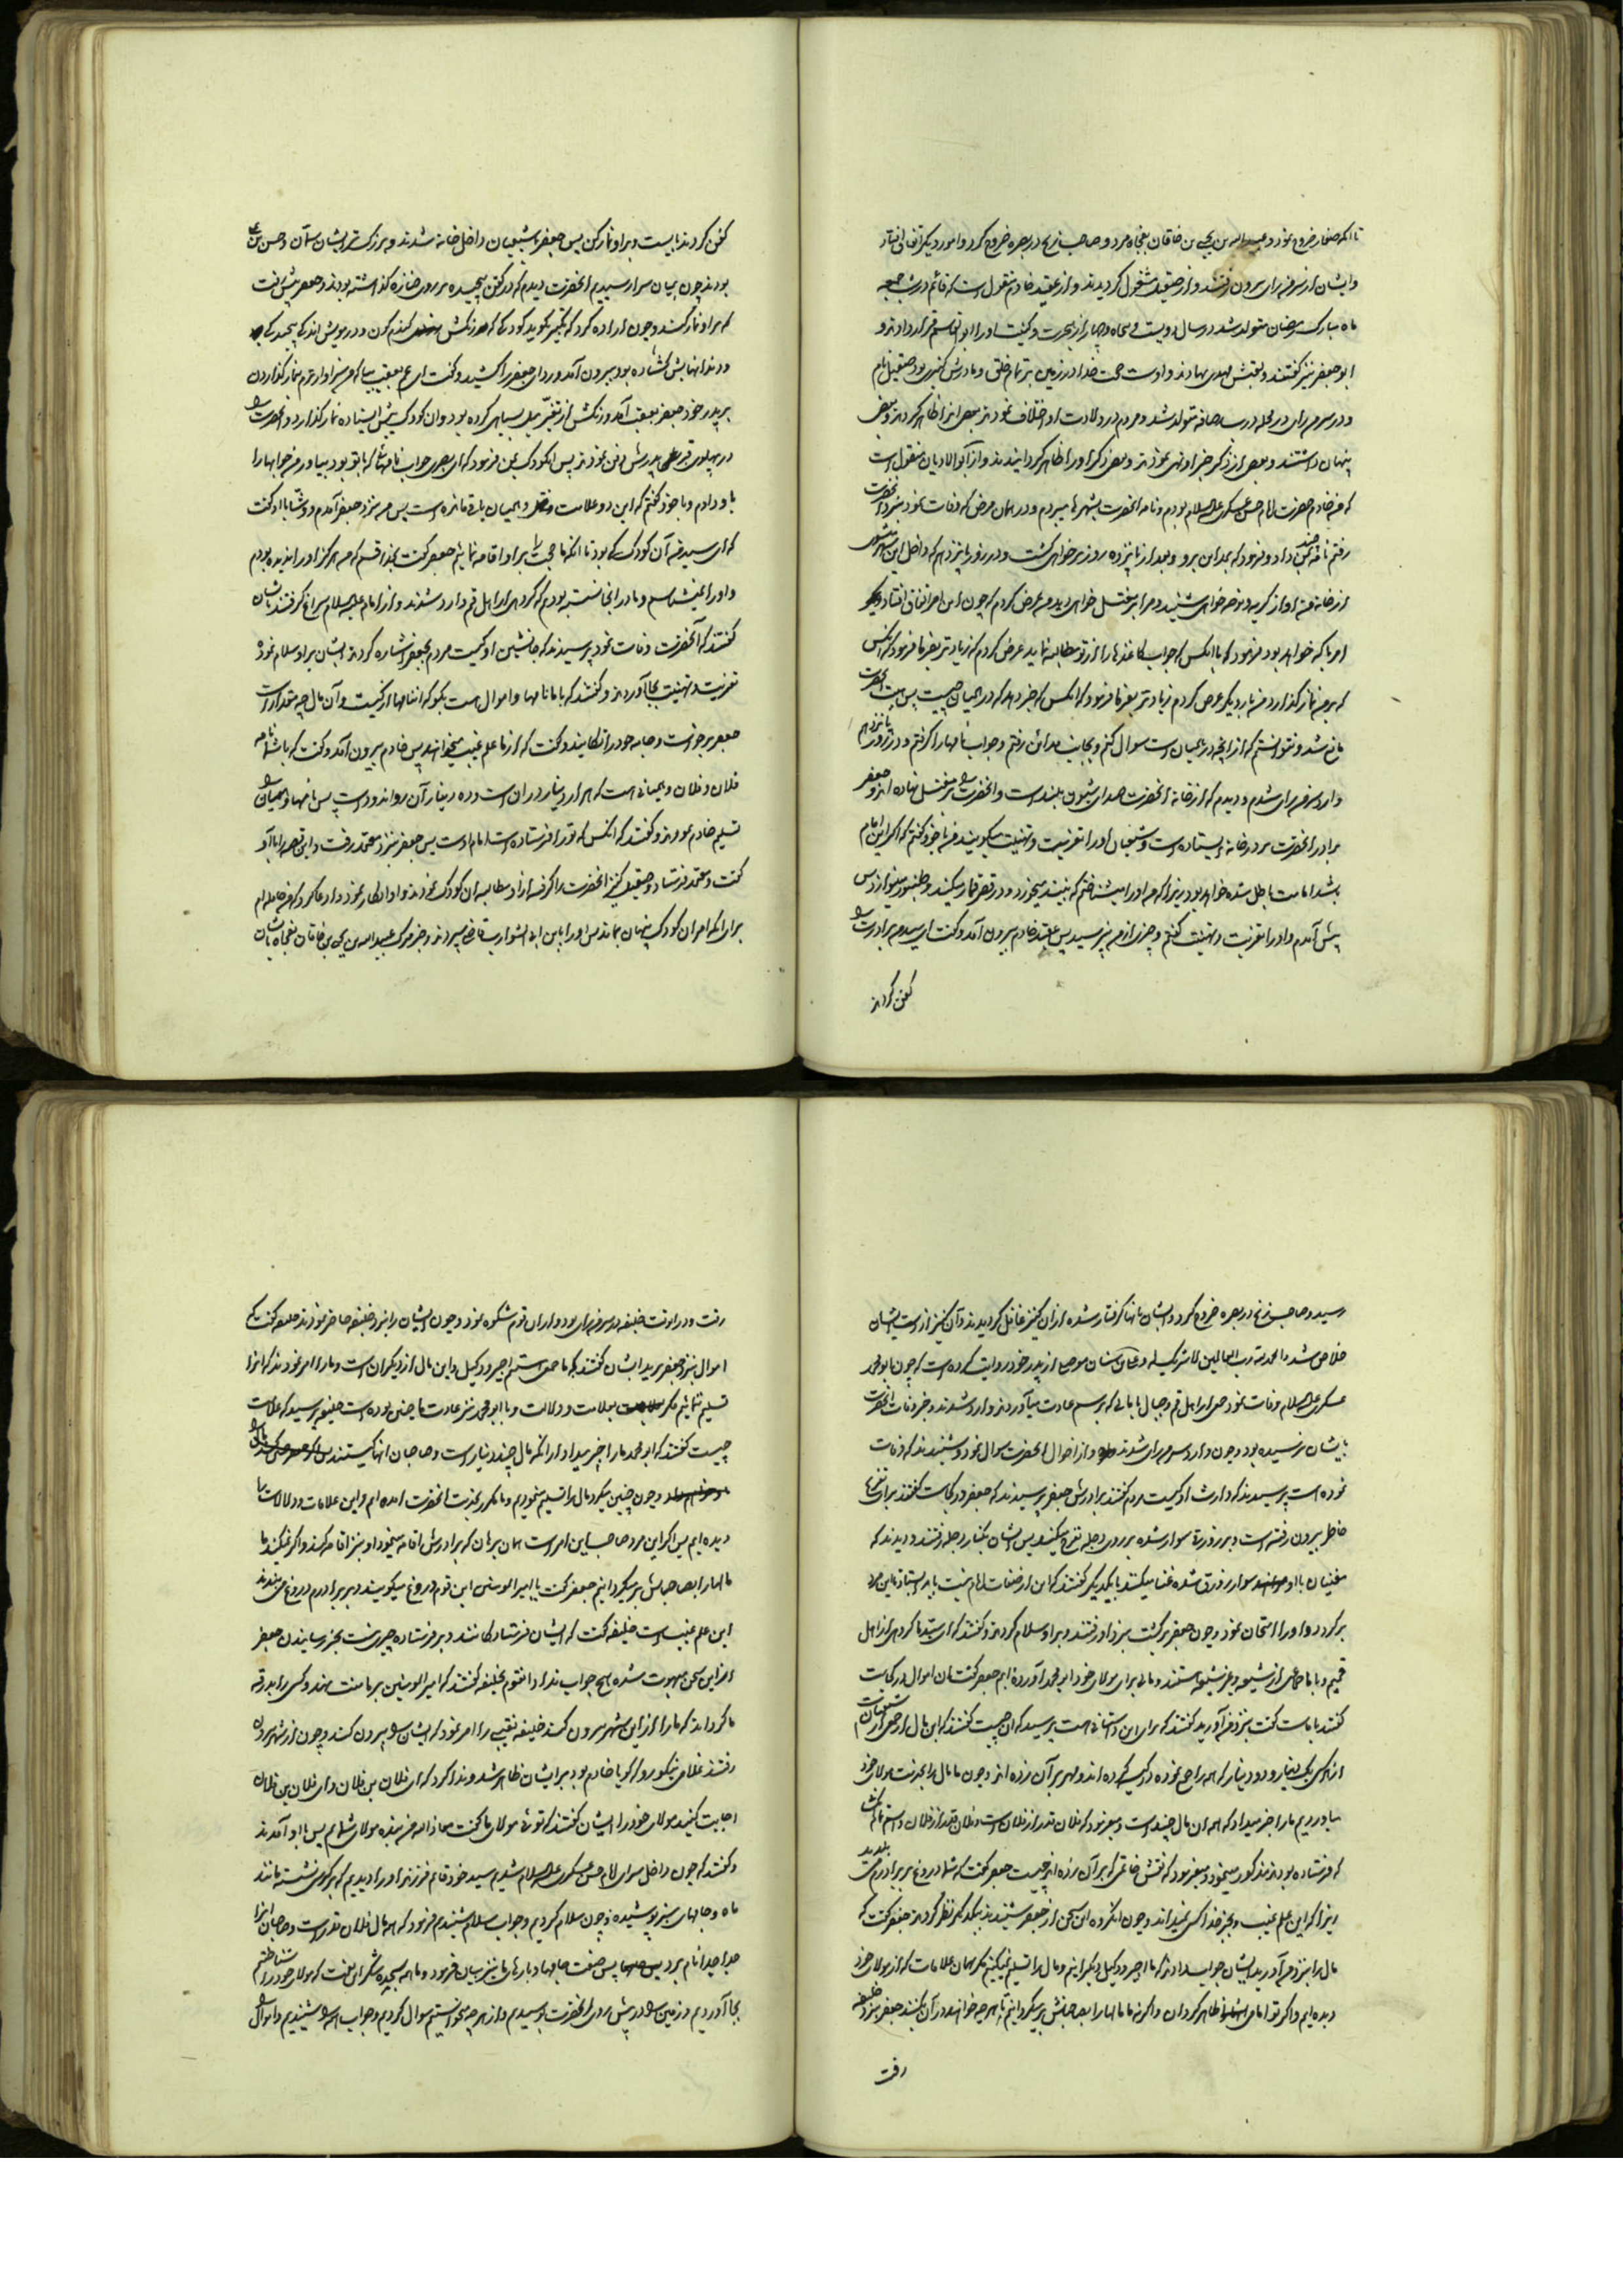 تا آنکه صفار خروج نمود و عبیدالله بن یحیی بن خاقان بفجاه مرد و صاحب زنج در بصره خروج کرد و امور دیگر اتفاق افتاد
و ایشان از سرمن رای بیرون رفتند و از صقیل مشغول گردیدند و از عقید خادم منقول است که قائم در شب جمعه
ماه مبارک رمضان متولد شد در سال دویست و پنجاه و چهار از هجرت و کنیت او را ابوالقاسم قرار دادند و
ابو جعفر نیز گفتند و لقبش مهدی نهادند و اوست حجت خدا در زمین بر تمام خلق و مادرش کنیزی بود صقیل نام
و در سرمن رای در محله درب رصافه متولد شد و مردم در ولادت او اختلاف نمودند بعضی اظهار کردند و بعضی
پنهان داشتند و بعضی از ذکر خبر او نهی نمودند و بعضی ذکر او را ظاهر گردانیدند و از ابوالادیان منقول است
که من خادم حضرت امام حسن عسکری علیه السلام بودم و نامه آنحضرت بشهرها میبردم و در همان مرض که وفات نمود بنزد آنحضرت
رفتم نامه چند بمن داد و فرمود که بمداین برو و بعد از پانزده روز بر خواهی گشت و در روز پانزدهم که داخل این شهر میشوی
از خانه من آواز گریه و نوحه خواهی شنید و مرا بر مغتسل خواهی دید من عرض کردم که چون این امر اتفاق افتاد
امر با که خواهد بود فرمود که با آنکس که جواب کاغذها را از تو مطالبه نماید عرض کردم که زیادتر بفرما فرمود که آنکس
که بر من نماز گذارد من بار دیگر عرض کردم زیادتر بفرما فرمود که آنکس که خبر دهد که در همیان چیست پس هیبت آنحضرت
مانع شد و نتوانستم که از آنچه در همیان است سوال کنم و بجانب مداین رفتم و جواب نامها را گرفتم و در روز پانزدهم
وارد سرمن رای شدم و دیدم که از خانه آنحضرت صدای شیون بلند است و آنحضرت را بر مغتسل نهاده اند و جعفر
برادر آنحضرت بر در خانه ایستاده است و شیعیان او را تعزیت و تهنیت میگویند من با خود گفتم که اگر این امام
باشد امامت باطل شده خواهد بود زیرا که من او را میشناختم که نبیذ میخورد و در قصر قمار میکند و طنبور مینوازد پس
پیش آمدم و او را تعزیت و تهنیت گفتم و چیزی از من نپرسید پس عقید خادم بیرون آمد و گفت ای سید من برادرت را
کفن کردند
کفن کردند بایست و بر او نماز کن پس جعفر با شیعیان داخل خانه شدند و بزرگتر ایشان سمان و حسن بن علی
بودند چون بمیان سرا رسیدیم آنحضرت دیدم که در کفن پیچیده بر روی جنازه گذاشته بودند و جعفر پیش رفت
که بر او نماز کند و چون اراده کرد که تکبیر بگوید کودکی که رنگش گندم گون و در مویش اندک پیچیدگی
و دندانهایش گشاده بود بیرون آمد و ردای جعفر را کشید و گفت ای عم بعقب بیا که من سزاوارترم بنماز گذاردن
بر پدر خود جعفر بعقب آمد و رنگش از تغیر میل بسیاهی کرده بود و آن کودک پیش ایستاده نماز گذارد و آنحضرت را
در پهلوی قبر پدرش دفن نمودند پس آن کودک بمن فرمود که ای بصری جواب نامهائی که با تو بود بیاور من جوابها را
باو دادم و با خود گفتم که این دو علامت و همیان باقی مانده است پس من بنزد جعفر آمدم و وشا با او گفت
که ای سید من آن کودک که بود تا آنکه ما حجت را بر او اقامه نمائیم جعفر گفت بخدا قسم که من هرگز او را ندیده بودم
و او را نمیشناسم و ما در آنجا نشسته بودیم که گروهی از اهل قم وارد شدند و از امام علیه السلام سراغ گرفتند بایشان
گفتند که آنحضرت وفات نمود پرسیدند که جانشین او کیست مردم بجعفر اشاره کردند ایشان بر او سلام نمود
تعزیت و تهنیت بجا آوردند و گفتند که با ما نامها و اموال هست بگو که این نامها از کیست و آن مال چه مقدار است
جعفر برخواست و جامه خود را تکانید و گفت که از ما علم غیب میخواهند پس خادم بیرون آمد و گفت که با شما نامه
فلان و فلان و همیانی هست که هزار دینار در آن است و ده دینار آن رواندود است پس نامها و همیان را
تسلیم خادم نمودند و گفتند که آنکس که تو را فرستاده است امام اوست پس جعفر بنزد معتمد رفت و این قصه را باو
گفت و معتمد فرستاد و صقیل کنیز آنحضرت را گرفته از او مطالبه آن کودک نمودند و او انکار نمود و ادعا کرد که من حامله ام
برای آنکه امر آن کودک پنهان بماند پس او را بابن ابی الشوارب قاضی سپردند و خبر مرگ عبیدالله بن یحیی بن خاقان بفجاه بایشان
رسید و صاحب زنج در بصره خروج کرد و ایشان بآنها گرفتار شده از آن کنیز غافل گردیدند و آن کنیز از دست ایشان
خلاص شد و الحمد لله رب العالمین لا شریک له و علی بن سنان موصلی از پدر خود روایت کرده است که چون ابو محمد
عسکری علیه السلام وفات نمود جمعی از اهل قم و جبال با مالی که برسم عادت میآوردند وارد شدند و خبر وفات آنحضرت
بایشان نرسیده بود و چون وارد سرمن رای شدند و از احوال آنحضرت سوال نمودند و شنیدند که وفات
نموده است پرسیدند که وارث او کیست مردم گفتند برادرش جعفر پرسیدند که جعفر در کجاست گفتند برای تفرج
خاطر بیرون رفته است و بر زورقی سوار شده بر روی دجله تفرج میکند پس ایشان بکنار دجله رفتند و دیدند که
مغنیان با او سوار بر زورق شده غنا میکنند با یکدیگر گفتند که این از صفات امام نیست باید ایستاد تا این مرد
برگردد و او را امتحان نمود و چون جعفر برگشت بنزد او رفتند و بر او سلام کردند و گفتند که ای سید ما گروهی از اهل
قمیم و با ما جمعی از شیعه و غیر شیعه هستند و مالی برای مولای خود ابو محمد آورده ایم جعفر گفت آن اموال در کجاست
گفتند با ماست گفت بنزد من آورید گفتند که برای این داستانی هست پرسید که آن چیست گفتند که این مال از جمعی از شیعیان است
از هر کس یک دینار و دو دینار که همه را جمع نموده در کیسه کرده اند و مهر بر آن زده اند و چون ما مال را بخدمت مولای خود
میاوردیم ما را خبر میداد که همه آن مال چند است و میفرمود که فلان قدر از فلان است و فلان قدر از فلان و اسم همه کسانی
که فرستاده بودند مذکور مینمود و میفرمود که نقش خاتمی که بر آن زده اند چیست جعفر گفت که شما دروغ بر برادرم میبندید
زیرا که این علم غیب و بجز خدا کس نمیداند و چون آن گروه این سخن از جعفر شنیدند بیکدیگر نظر کردند جعفر گفت که
مال را بنزد من آورید ایشان جواب دادند که ما اجیر و وکیل دیگرانیم و مال را تسلیم نمیکنیم مگر بهمان علامات که از مولای خود
دیده ایم و اگر تو امامی ظاهر گردان و اگر نه ما مالها را بصاحبانش بر میگردانیم تا هر چه خواهند در آن بکنند جعفر بنزد خلیفه
رفت
رفت و در آنوقت خلیفه در سرمن رای بود و از آن قوم شکوه نمود و چون ایشان را بنزد خلیفه حاضر نمودند خلیفه گفت که
اموال بنزد جعفر برید ایشان گفتند که ما جمعی هستیم اجیر و وکیل و این مال از دیگران است و ما را امر نمودند که آنرا
تسلیم ننمائیم مگر بعلامت و دلالت و با ابو محمد نیز عادت ما چنین بوده است خلیفه پرسید که علامت
چیست گفتند که ابو محمد ما را خبر میداد از آنکه مال چند دینار است و صاحبان آنها کیستند
و چون چنین میکرد مال را تسلیم مینمودیم و ما مکرر بخدمت آنحضرت آمده ایم و این علامات و دلالات را
دیده ایم پس اگر این مرد صاحب این امر است همان برهان که برادرش اقامه مینمود او نیز اقامه کند و اگر نمیکند ما
مالها را بصاحبانش بر میگردانیم جعفر گفت یا امیر المومنین این قوم دروغ میگویند و بر برادرم دروغ میبندند
این علم غیب است خلیفه گفت که ایشان فرستادگانند و بر فرستاده چیزی نیست بجز رسانیدن جعفر
از این سخن مبهوت شده هیچ جواب نداد و آن قوم بخلیفه گفتند که امیر المومنین بر ما منت نهند و کسی را بدرقه
ما گرداند که ما را از این شهر بیرون کند خلیفه نقیبی را امر نمود که ایشان را بیرون کند و چون از شهر بیرون
رفتند غلامی نیکورو که گویا خادم بود بر ایشان ظاهر شد و ندا کرد که ای فلان بن فلان و ای فلان بن فلان
اجابت کنید مولای خود را ایشان گفتند که توئی مولای ما گفت معاذ الله من بنده مولای شمایم پس با او آمدند
و گفتند که چون داخل سرای امام حسن عسکری علیه السلام شدیم سید خود قائم فرزند او را دیدیم که بر کرسی نشسته مانند
ماه و جامهای سبز پوشیده و چون سلام کردیم و جواب سلام شنیدیم فرمود که همه مال فلان قدر است و صاحبان آنرا
جدا جدا نام برد پس صفت جامها و بارهای ما نیز بیان فرمود و ما همه سجده شکر این نعمت که مولای خود را شناختیم
بجا آوردیم و زمین را در پیش روی آنحضرت بوسیدیم و از هر چه میخواستیم سوال کردیم و جواب همه را شنیدیم و اموال